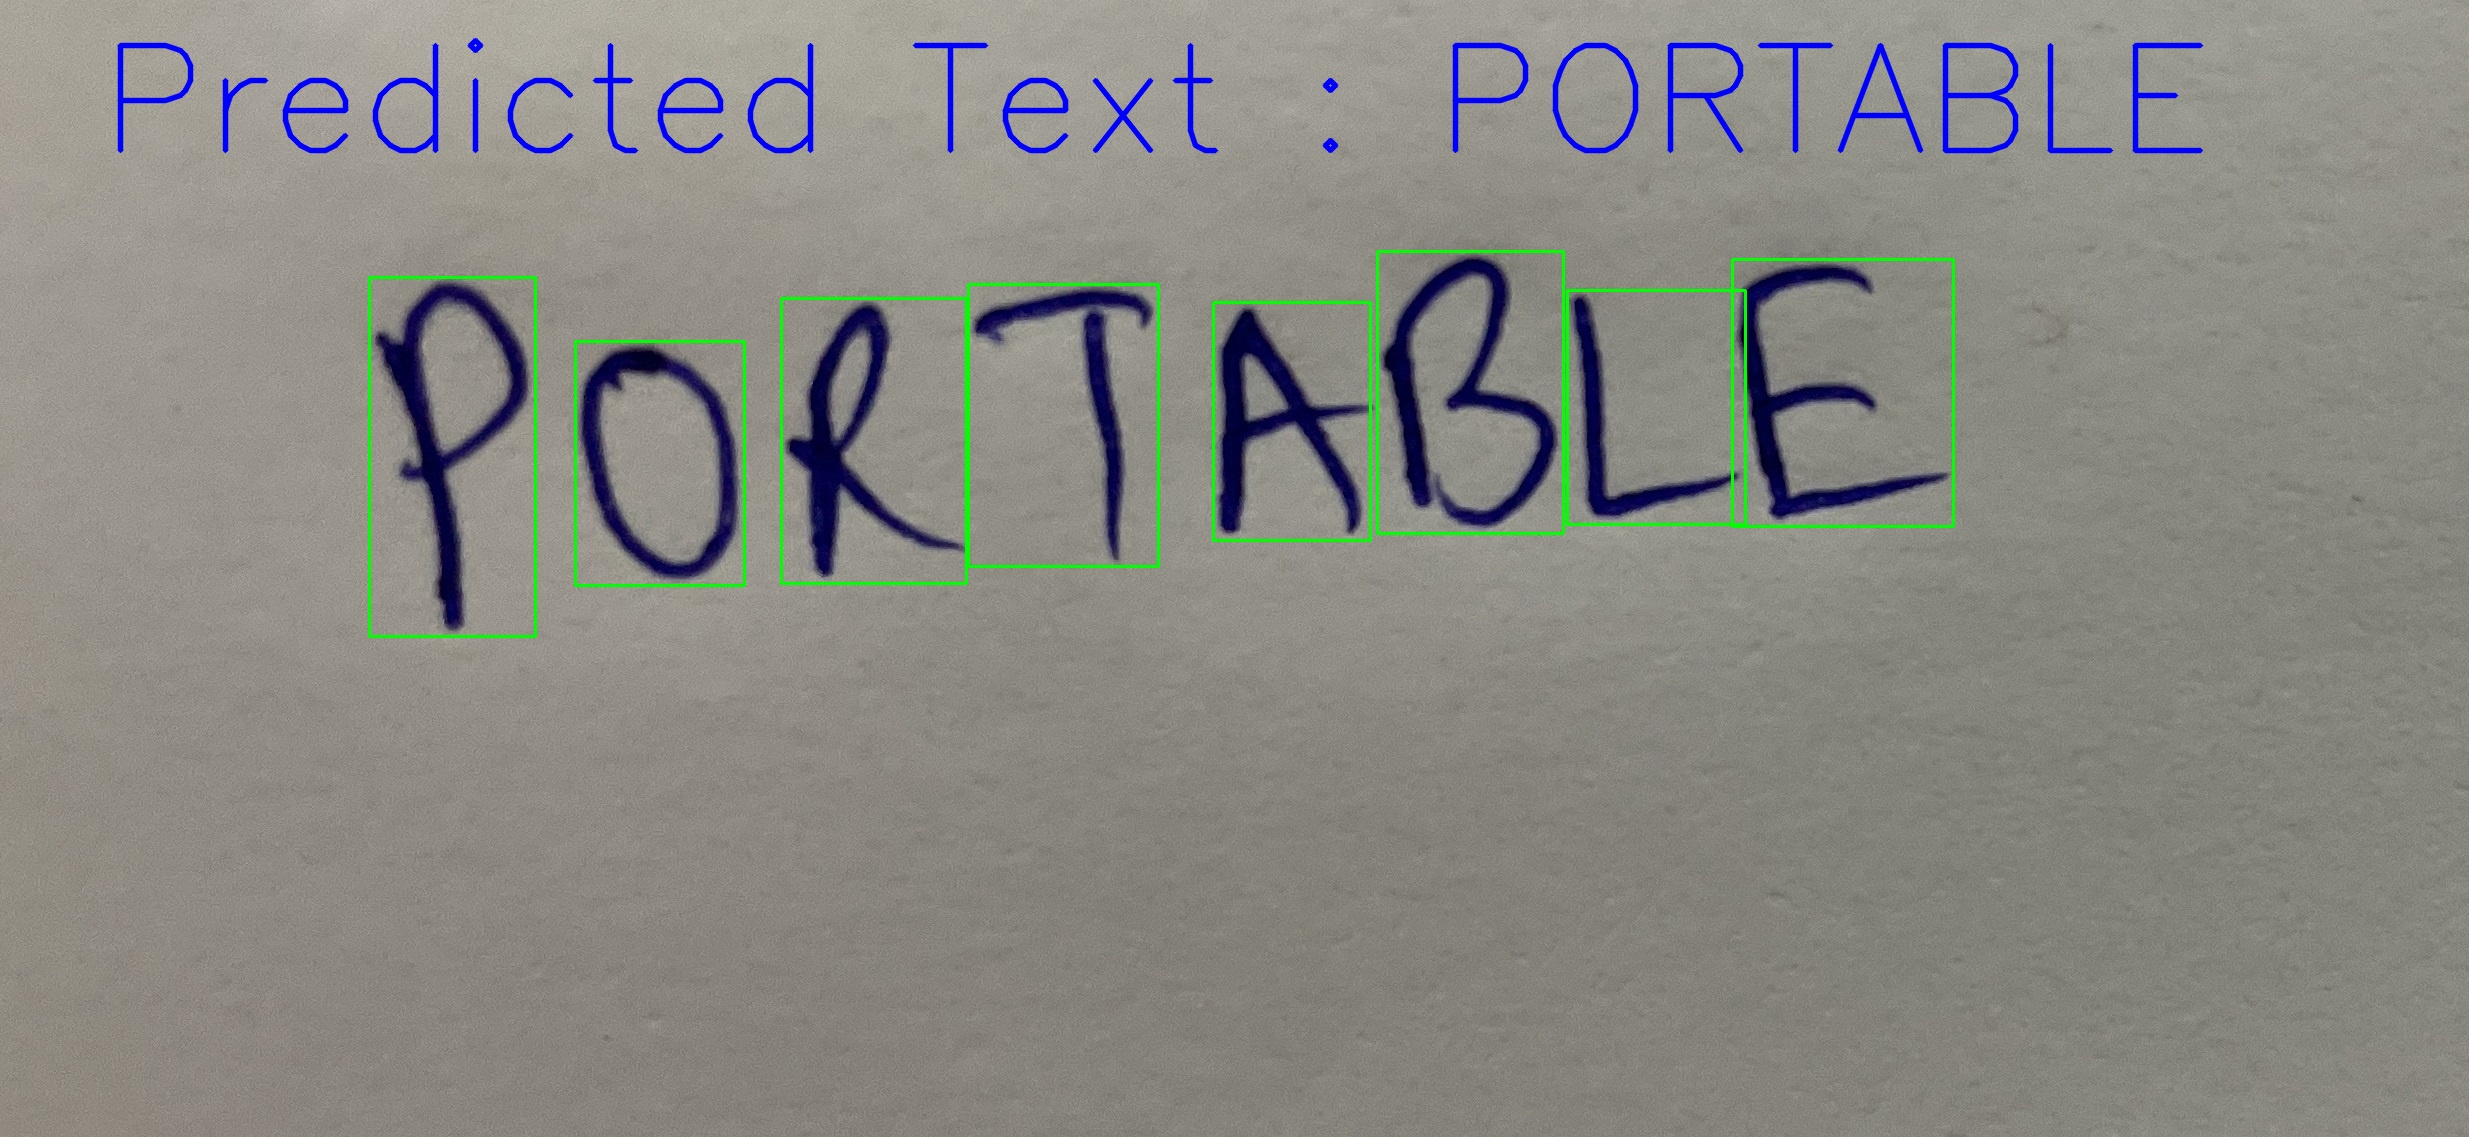 Predicted Text : PORTABLE
PORTABLE